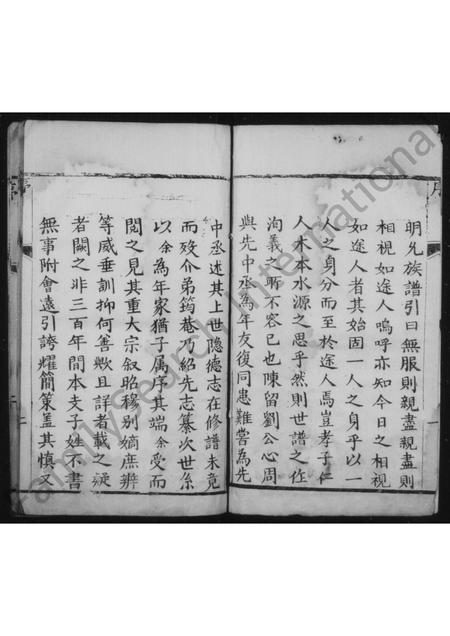 明允族譜引曰無服則親盡親盡則
相視如途人嗚呼亦知今日之相視
如途人者其始固一人之身乎以一
人之身分而至於途人焉豈孝子仁
人木本水源之思乎然則世譜之作
洵義之所不容已也陳留劉公心周
與先中丞為年友復同患難嘗為先
中丞述其上世隱德志在修譜未竟
而歿介弟筠巷乃紹先志纂次世系
以余為年家猶子属序其端余受而
閱之見其重大宗叙昭穆别嫡庶辨
等威垂訓抑何善歟且詳者載之疑
者闕之非三百年間本支子姓不書
無事附會遠引誇耀簡策蓋其慎又
FamilySearch International